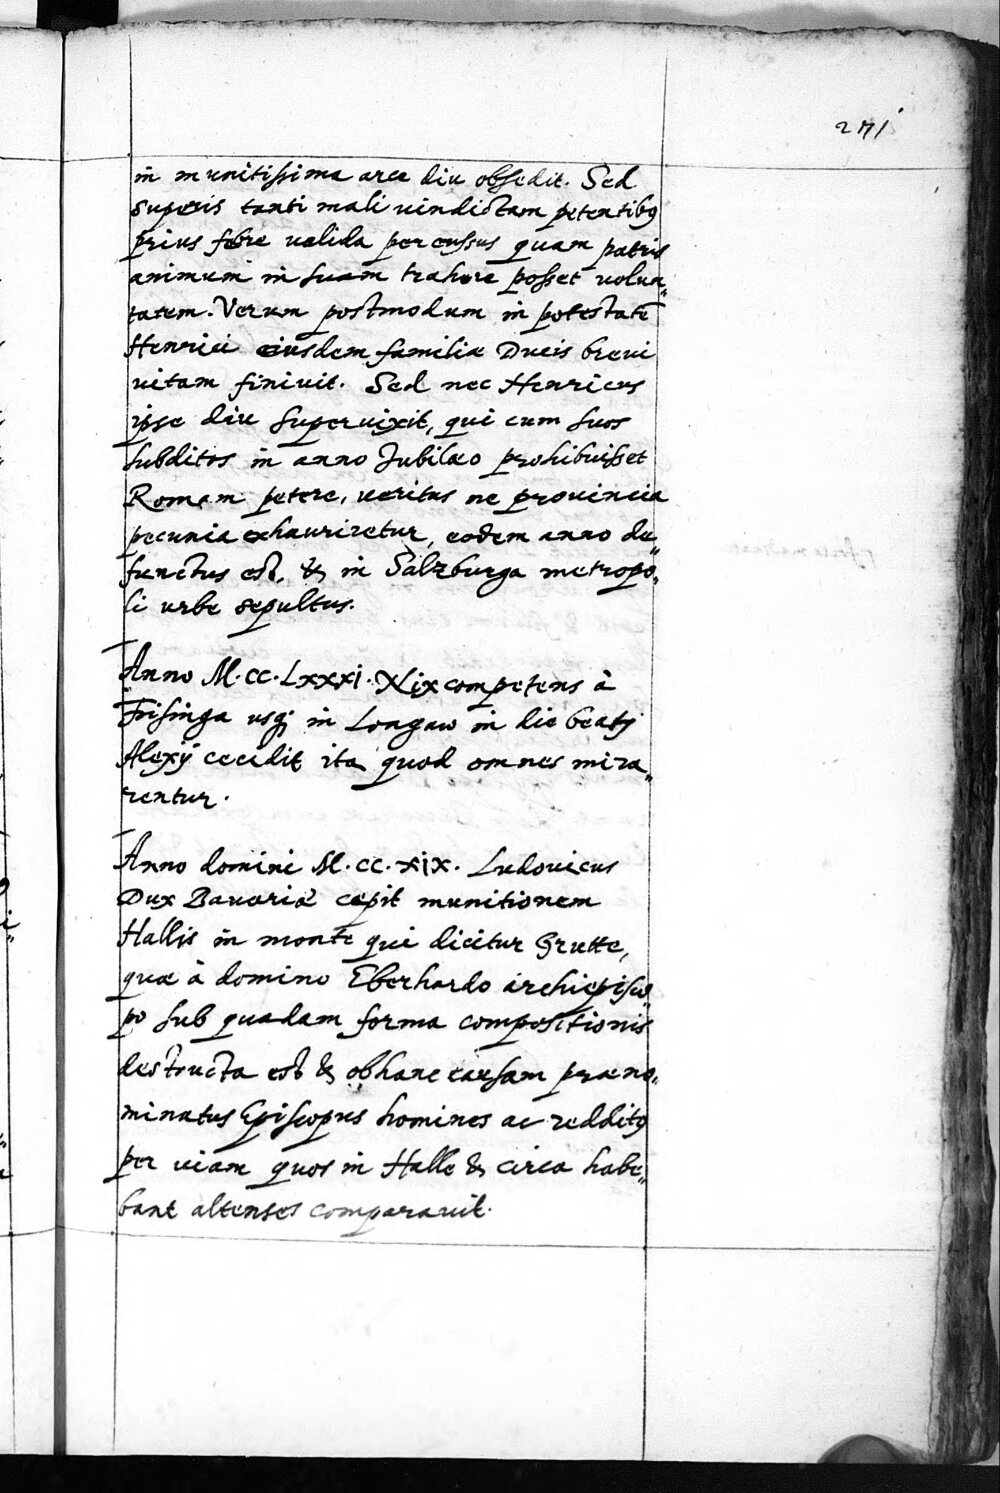 271
in munitissima arce diu obsedit. Sed
superis tanti mali uindictam petentibꝯ
prius febre ualida percussus quam patris
animum in suam trahere posset uolun„
tatem. Verum postmodum in potestatē
Henrici eiusdem familiæ Ducis breui
uitam finiuit. Sed nec Henricus
ipse diu superuixit, qui cum suos
subditos in anno Jubilæo prohibuisset
Romam petere, ueritus ne prouincia
pecunia exhauriretur, eodem anno de„
functus est, & in Salzburga metropo„
li urbe sepultus.
Anno M·CC·LXXXI· Nix competens à
Frisinga usq; in Longaw in die beatj
Alexÿ cecidit ita quod omnes mira„
rentur.
Anno domini M·CC·XIX· Ludouicus
Dux Bauariæ cepit munitionem
Hallis in monte qui dicitur Grutte,
quæ à domino Eberhardo archiepisco„
po sub quadam forma compositionis
destructa est & ob hanc causam præno„
minatus Episcopus homines ac redditꝯ
per uiam quos in Halle & circa habe„
bant altenses comparauit.